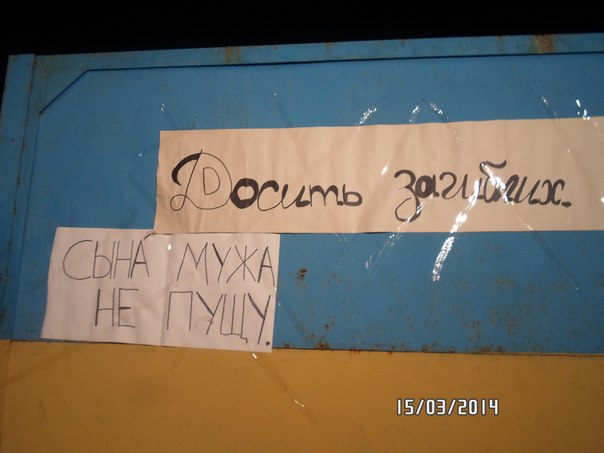 Досить загиблих.
СЫНА МУЖА
НЕ ПУЩУ.
15/03/2014